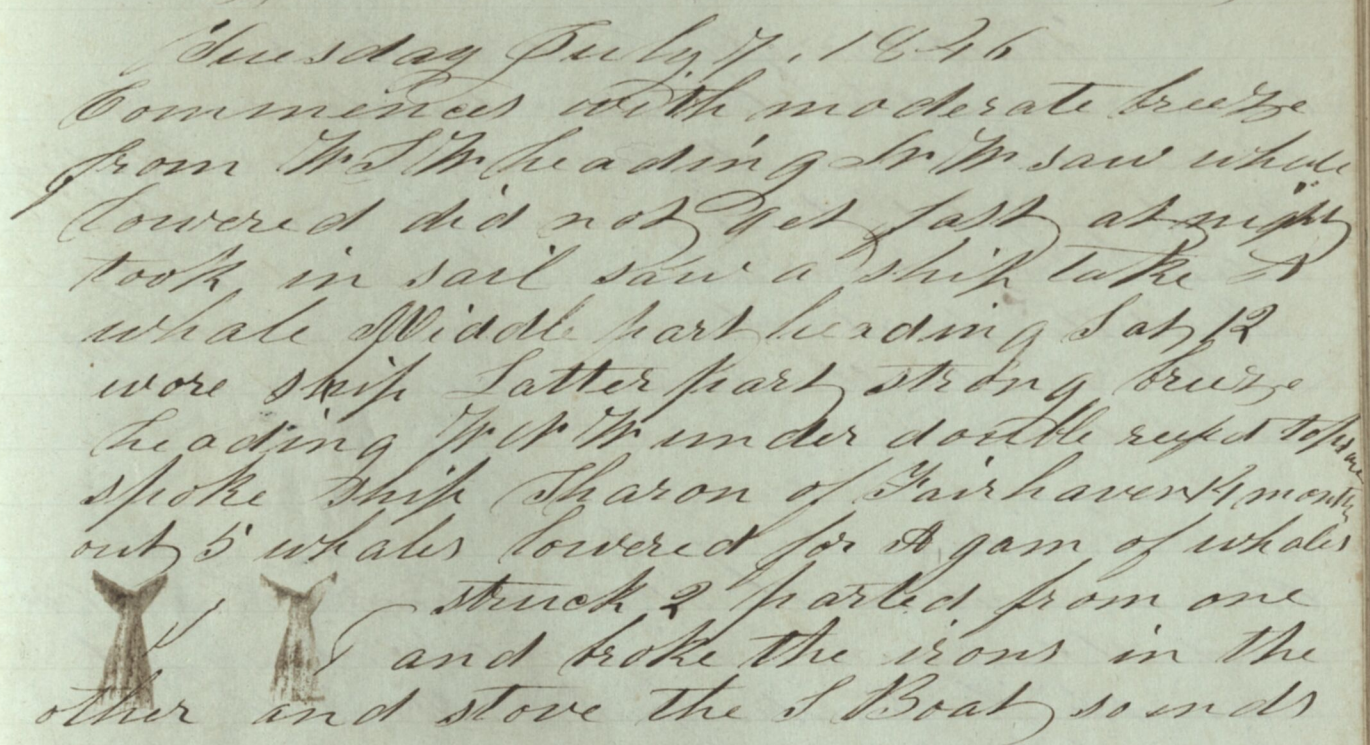 Tuesday July 7, 1846
Commences with moderate breeze
from WSW heading NW saw whale
lowered did not get fast at night
took in sail saw a ship take A
whale Middle part heading S at 12
wore ship Latter part strong breeze
heading WNW under double reefed topsails
spoke Ship Sharon of Fairhaven months
out 5 whales lowered for A gam of whales
struck 2 parted from one
and broke the irons in the
other and stove the S Boat so ends